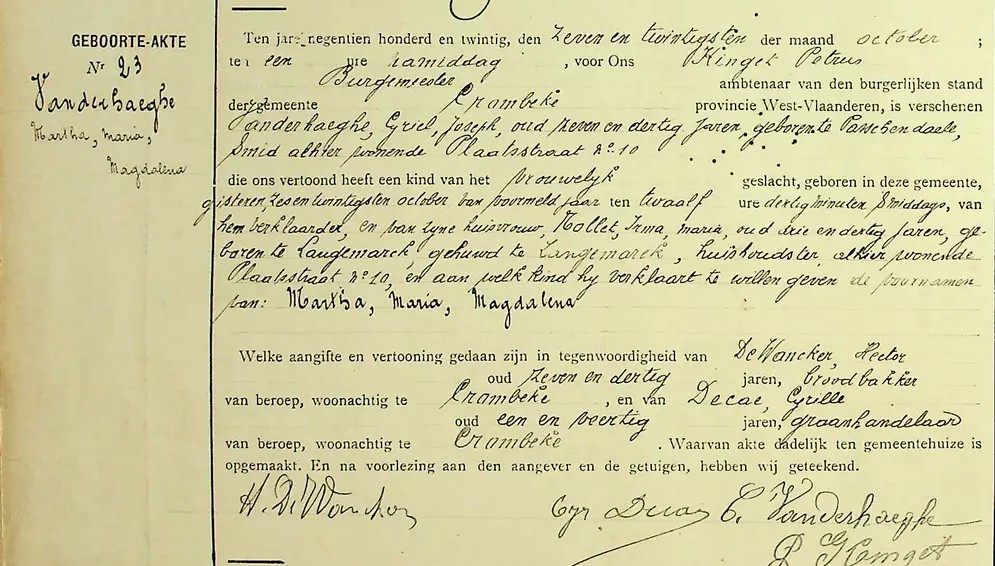 GEBOORTE-AKTE
Nr 23
Vanderhaeghe
Martha, Maria,
Magdalena
Ten jare negentien honderd en twintig, den Zeven en twintigsten der maand october ;
te een ure namiddag , voor Ons Kinget Petrus
Burgemeester ambtenaar van den burgerlijken stand
der gemeente Crombeke provincie West-Vlaanderen, is verschenen
Vanderhaeghe, Cyriel, Joseph, oud zeven en dertig Jaren, geboren te Passchendaele,
Smid alhier wonende Plaatsstraat no 10
die ons vertoond heeft een kind van het vrouwelyk geslacht, geboren in deze gemeente,
gisteren zesentwintigsten october van voormeld jaar ten twaalf ure dertig minuten Smiddags, van
hem verklaarder, en van zyne huisvrouw, Nollet, Irma, maria, oud drie en dertig Jaren, ge-
boren te Langemarck, gehuwd te Langemarck, huishoudster, alhier wonende
Plaatsstraat no 10, en aan welk kind hy verklaart te willen geven de voornamen
van: Martha, Maria, Magdalena
Welke aangifte en vertooning gedaan zijn in tegenwoordigheid van DeWancker, Hector
oud zeven en dertig jaren, broodbakker
van beroep, woonachtig te Crombeke , en van Decae, Cyrille
oud een en veertig jaren, graanhandelaar
van beroep, woonachtig te Crombeke . Waarvan akte dadelijk ten gemeentehuize is
opgemaakt. En na voorlezing aan den aangever en de getuigen, hebben wij geteekend.
H. DeWancker Cyr Decae C. Vanderhaeghe
P. Kinget